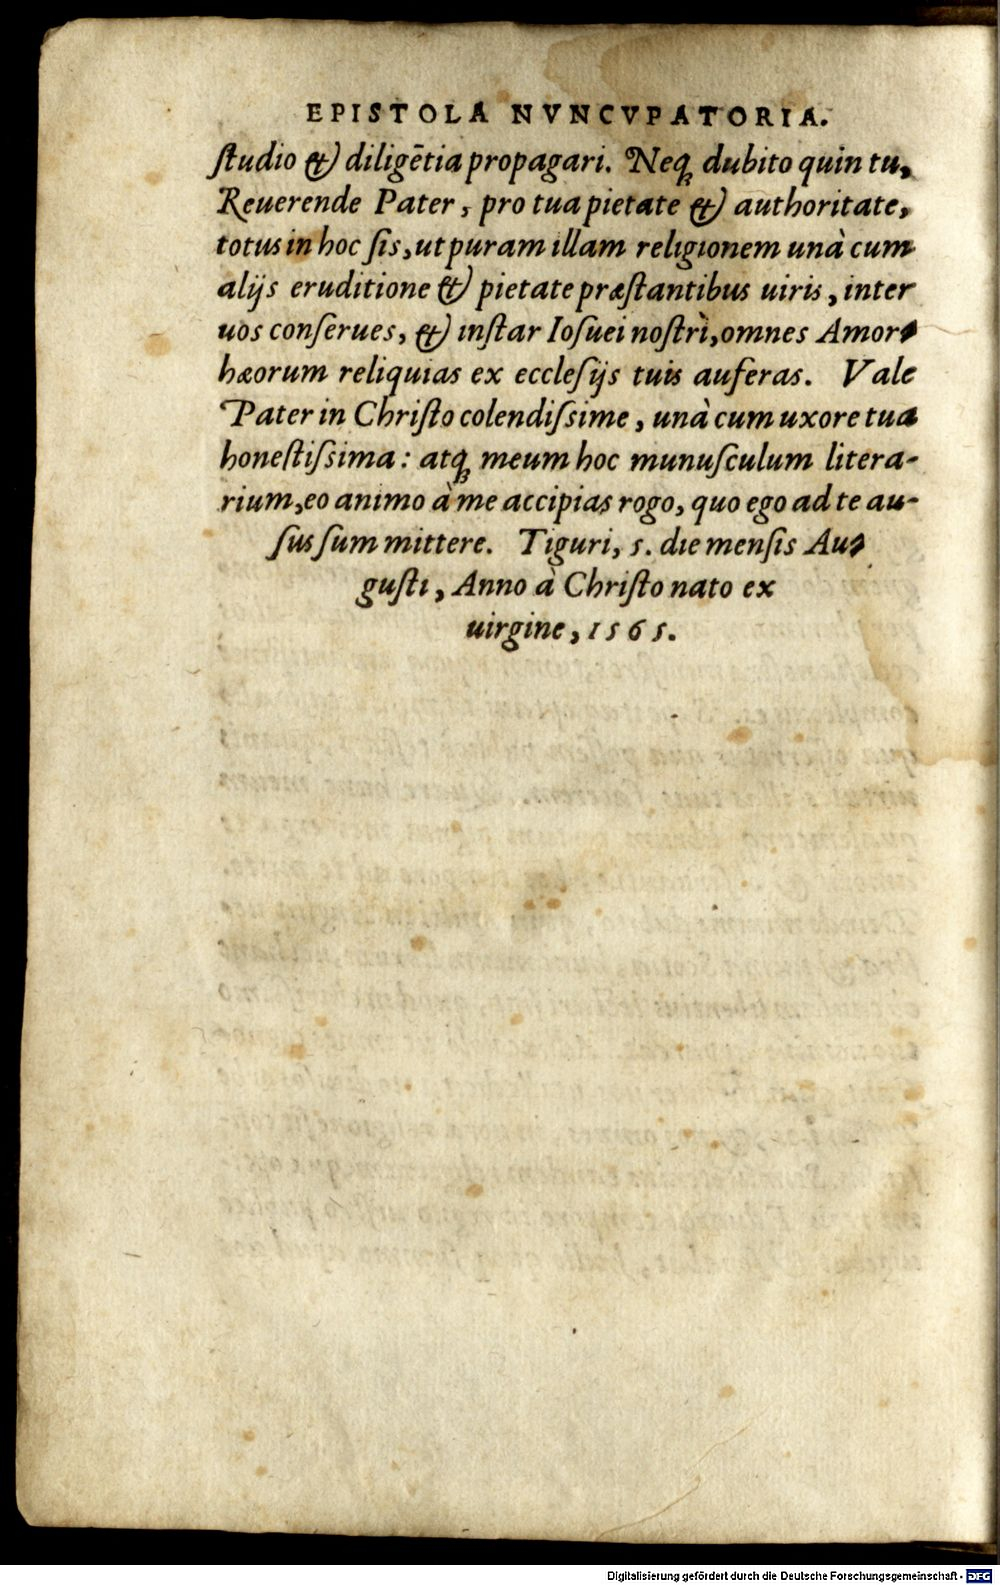 EPISTOLA NVNCVPATORIA.
ſtudio & diligētia propagari. Neqꝫ dubito quin tu,
Reuerende Pater, pro tua pietate & authoritate,
totus in hoc ſis, ut puram illam religionem unà cum
alijs eruditione & pietate præſtantibus uiris, inter
uos conſerues, & inſtar Ioſuei noſtrì, omnes Amor-
hæorum reliquias ex eccleſijs tuis auferas. Vale
Pater in Chriſto colendiſsime, unà cum uxore tua
honeſtiſsima: atqꝫ meum hoc munuſculum litera-
rium, eo animo à me accipias rogo, quo ego ad te au-
ſus ſum mittere. Tiguri, 5. die menſis Au-
guſti, Anno à Chriſto nato ex
uirgine, 1565.
Digitalisierung gefördert durch die Deutsche Forschungsgemeinschaft - DFG